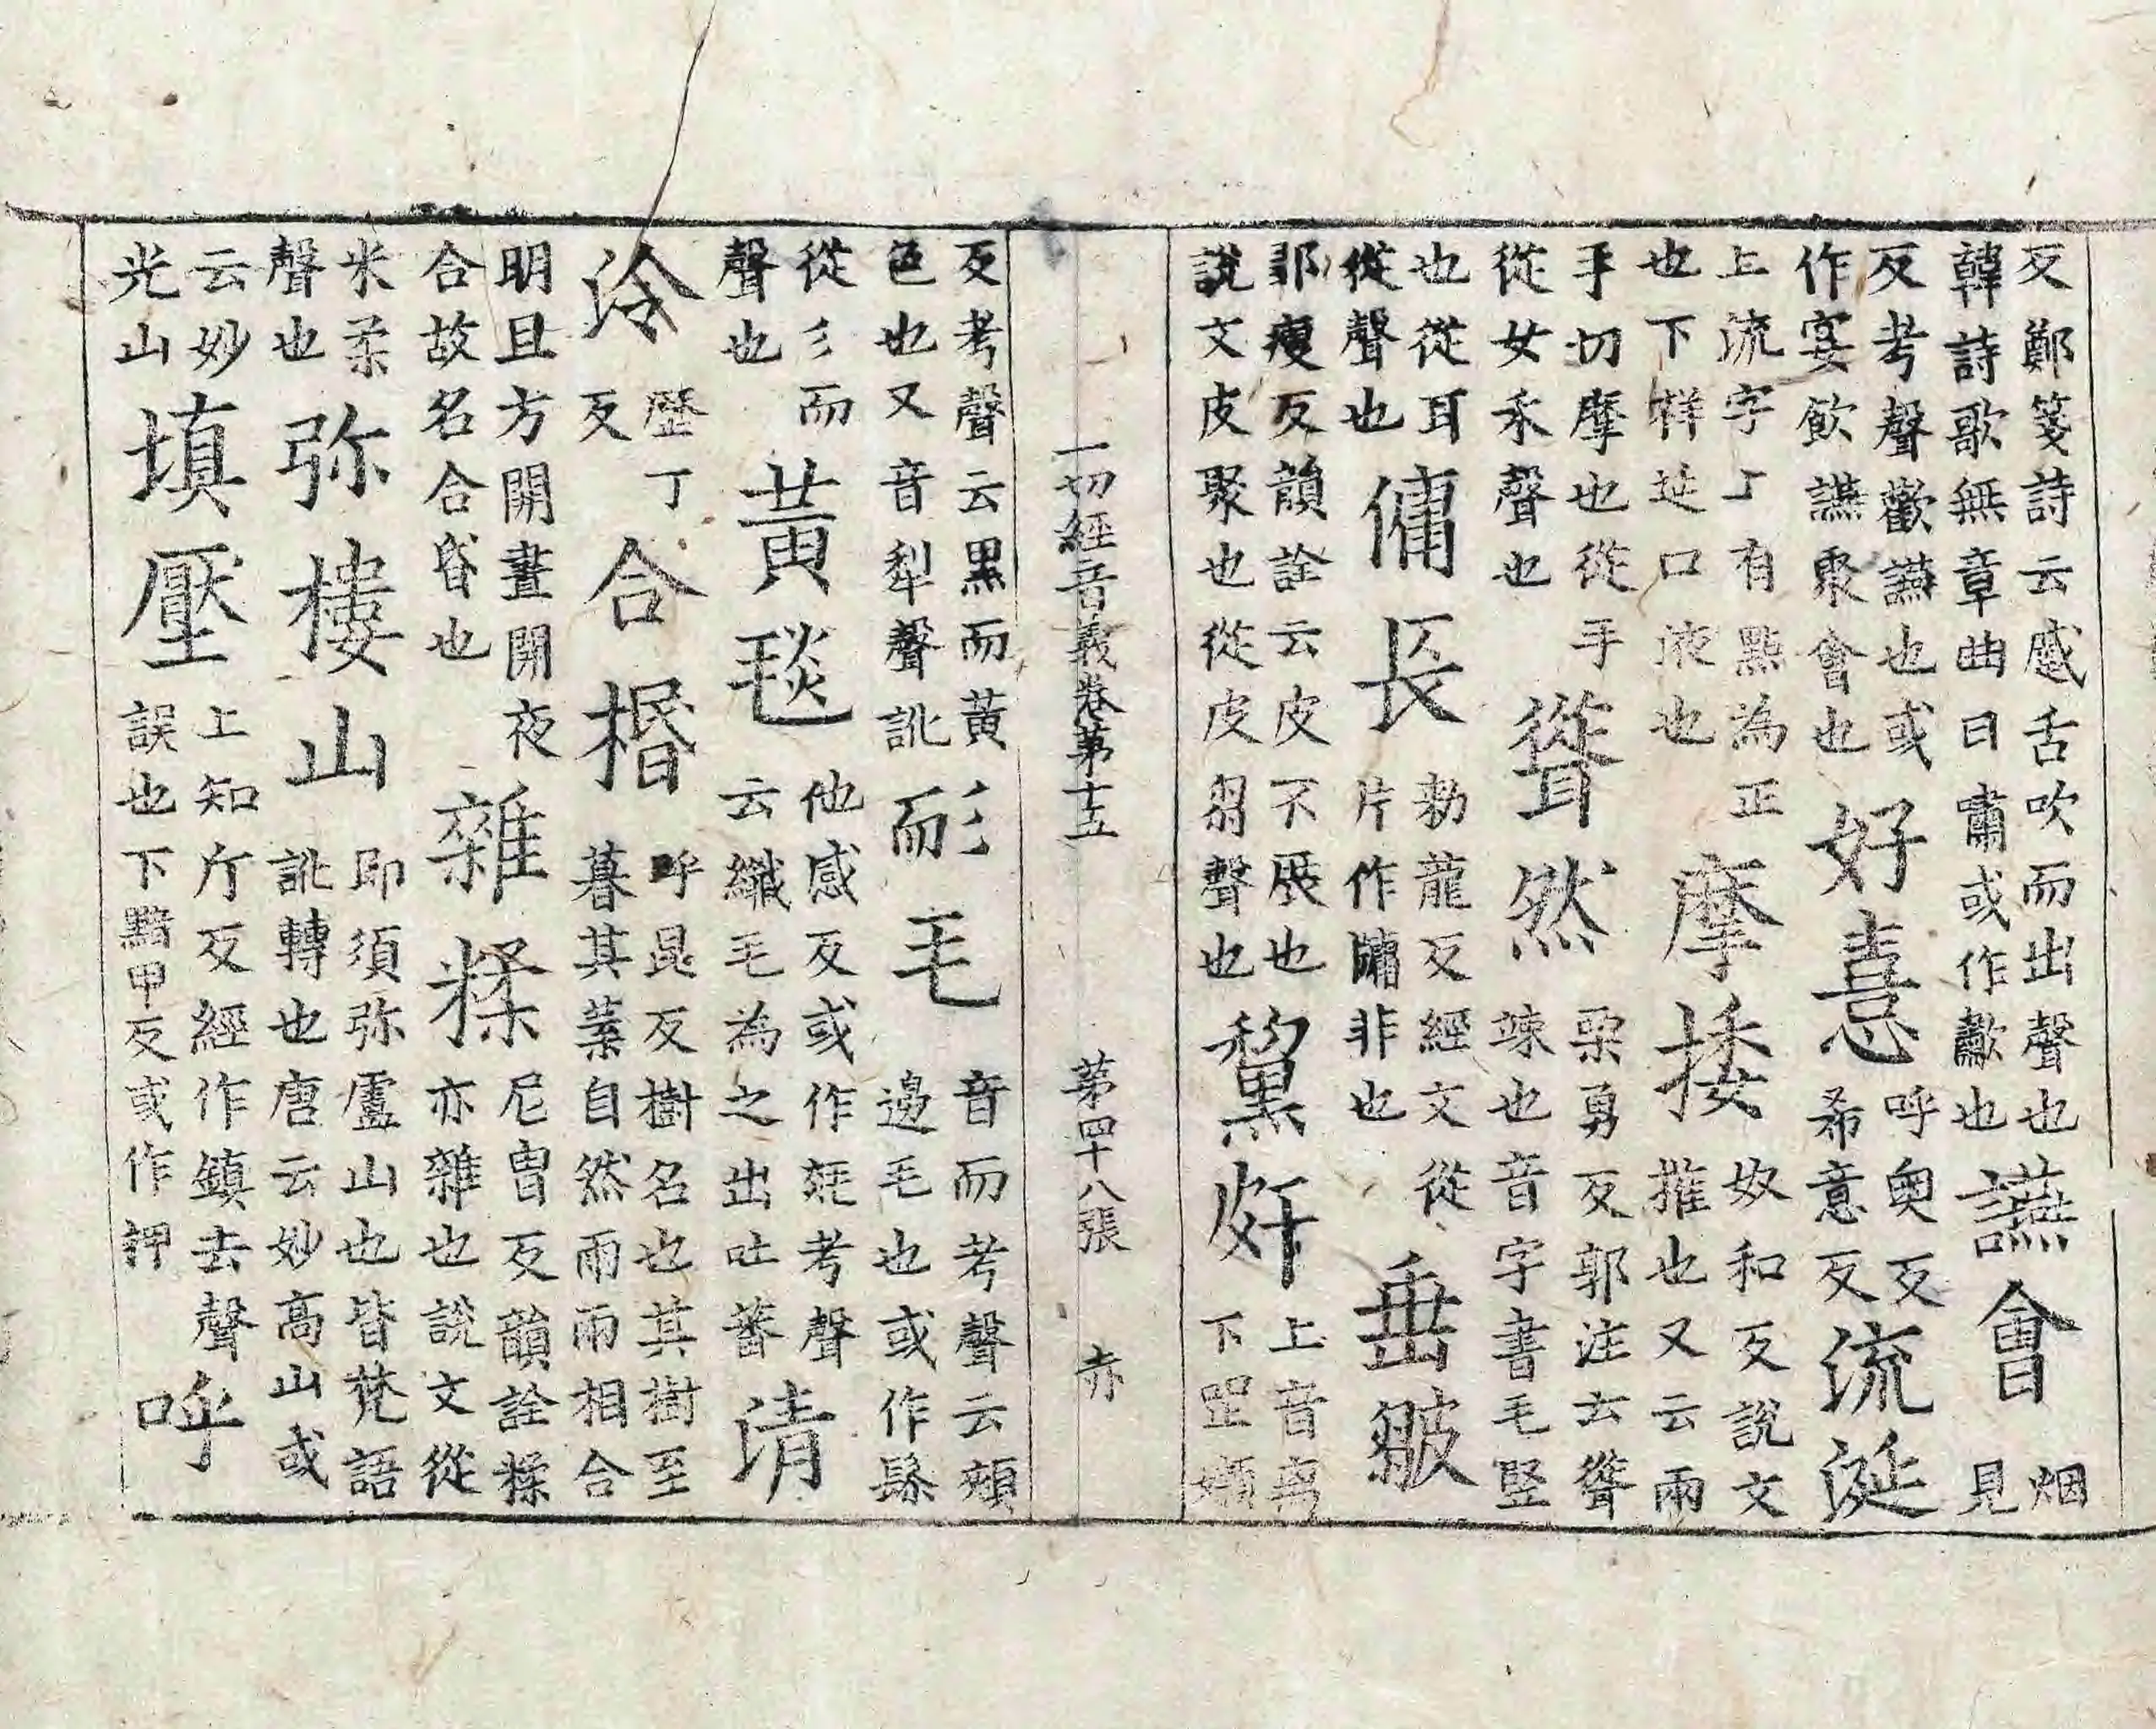 反鄭箋詩云感舌吹而出聲也
韓詩歌無章曲曰嘯或作歗也
讌會
烟
見
反考聲歡讌也或
作宴飲讌聚會也
好憙
呼奧反
希意反
流涎
上流字上有點為正
也下祥延口液也
摩捼
奴和反說文
摧也又云兩
手切摩也從手
從女禾聲也
聳然
栗勇反郭注云聳
竦也音字書毛竪
也從耳
從聲也
傭長
勑龍反經文從
片作牗非也
垂皺
鄒瘦反韻詮云皮不展也
說文皮聚也從皮芻聲也
黧奸
上音
下
一切經音義卷第十五 第四十八張 赤
反考聲云黑而黃
色也又音犁聲訛
耏毛
音而考聲云頰
邊毛也或作髵
從彡而
聲也
黃毯
他感反或作毯考聲
云纖毛為之出吐蕃
清
泠
歷丁
反
合㮙
呼昆反樹名也其樹至
暮其葉自然兩兩相合
明旦方開晝開夜
合故名合昏也
雜糅
尼胄反韻詮糅
亦雜也說文從
米柔
聲也
弥樓山
即須弥盧山也皆梵語
訛轉也唐云妙高山或
云妙
光山
填壓
上知斤反經作鎮去聲
誤也下黯甲反或作押
呼